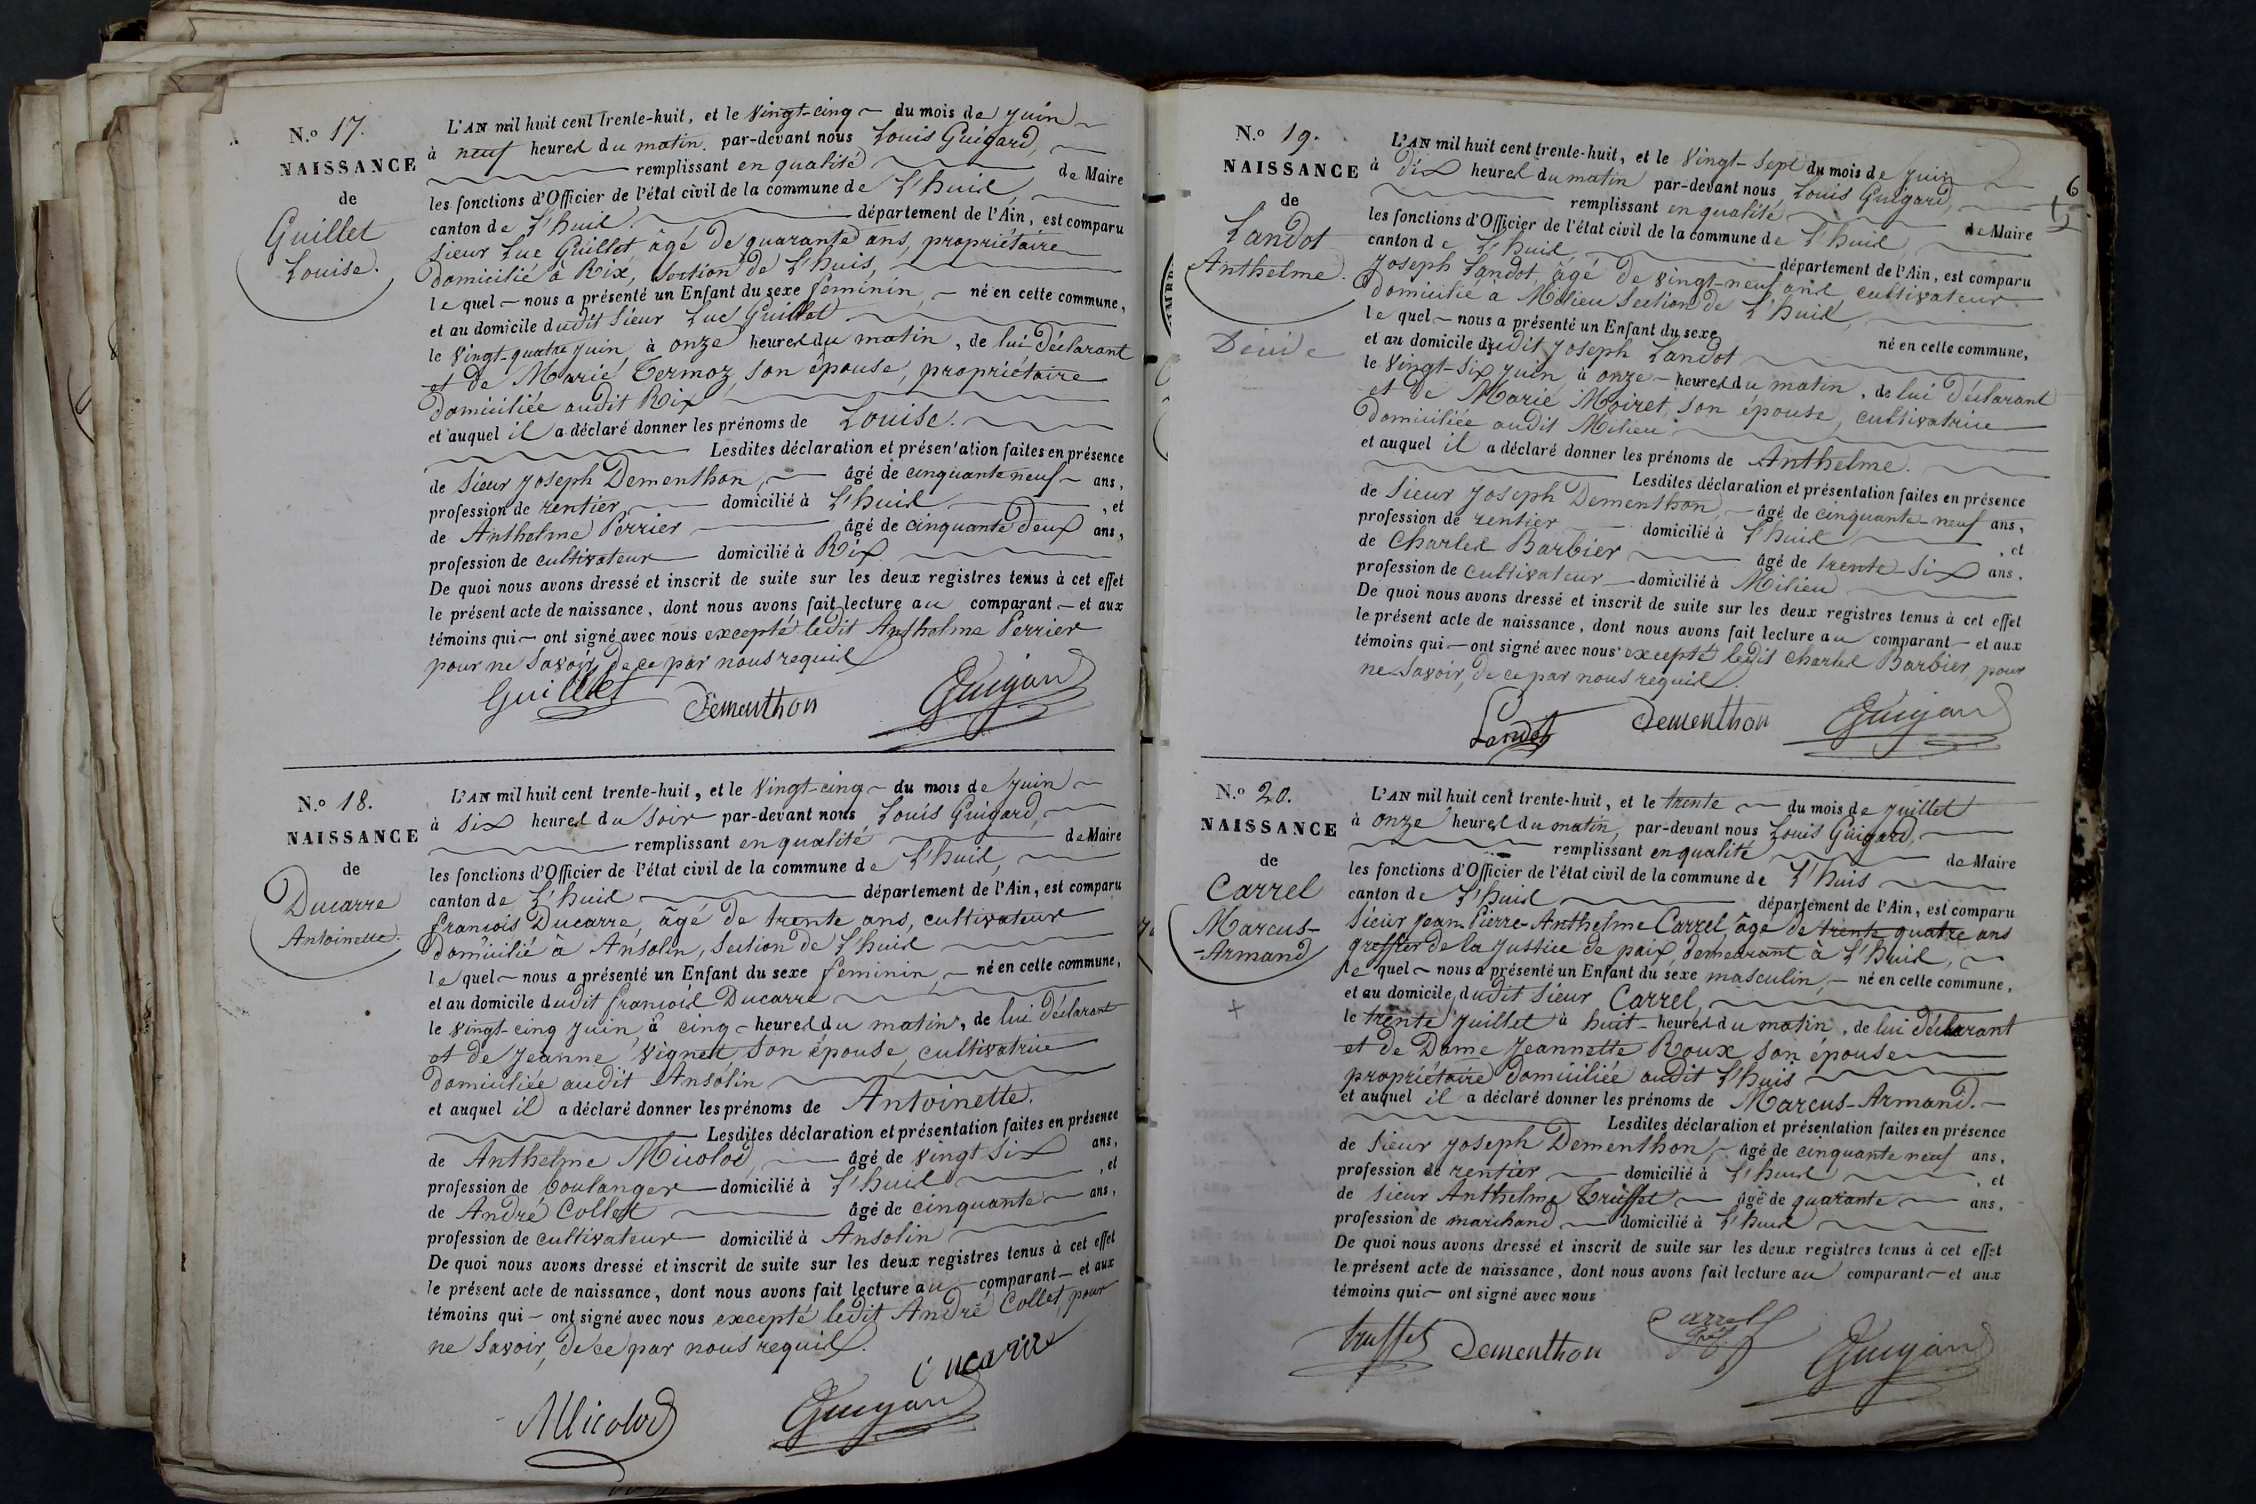 N.o 17.
NAISSANCE
de
Guillet
Louise.
L'AN mil huit cent trente-huit, et le Vingt-cinq du mois de Juin
à neuf heures du matin. par-devant nous Louis Guigard,
remplissant en qualité de Maire
les fonctions d'Officier de l'état civil de la commune de L'huis,
canton de L'huis département de l'Ain, est comparu
Sieur Luc Guillet âgé de quarante ans, propriétaire
domicilié à Rix, Section de L'huis,
le quel nous a présenté un Enfant du sexe féminin, né en cette commune,
et au domicile dudit Sieur Luc Guillet
le Vingt-quatre Juin à onze heures du matin, de lui déclarant
et de Marie Termoz, son épouse, propriétaire
domiciliée audit Rix
et auquel il a déclaré donner les prénoms de Louise.
Lesdites déclaration et présentation faites en présence
de Sieur Joseph Dementhon, âgé de cinquante neuf ans,
profession de rentier, domicilié à L'huis, et
de Anthelme Perrier âgé de cinquante deux ans,
profession de cultivateur domicilié à Rix
De quoi nous avons dressé et inscrit de suite sur les deux registres tenus à cet effet
le présent acte de naissance, dont nous avons fait lecture au comparant et aux
témoins qui ont signé avec nous excepté ledit Anthelme Perrier
pour ne Savoir, de ce par nous requis.
Guillet Dementhon Guigard
N.o 18.
NAISSANCE
de
Ducarre
Antoinette.
L'AN mil huit cent trente-huit, et le Vingt-cinq du mois de Juin
à Six heures du Soir par-devant nous Louis Guigard,
remplissant en qualité de Maire
les fonctions d'Officier de l'état civil de la commune de L'huis,
canton de L'huis département de l'Ain, est comparu
françois Ducarre, âgé de trente ans, cultivateur
domicilié à Ansolin, Section de L'huis
le quel nous a présenté un Enfant du sexe féminin, né en cette commune,
et au domicile dudit françois Ducarre
le Vingt-cinq Juin, à cinq heures du matin, de lui déclarant
et de Jeanne Vignet son épouse, cultivatrice
domiciliée audit Ansolin
et auquel il a déclaré donner les prénoms de Antoinette.
Lesdites déclaration et présentation faites en présence
de Anthelme Micolod, âgé de vingt Six ans,
profession de boulanger domicilié à L'huis, et
de André Collet âgé de cinquante ans,
profession de cultivateur domicilié à Ansolin
De quoi nous avons dressé et inscrit de suite sur les deux registres tenus à cet effet
le présent acte de naissance, dont nous avons fait lecture au comparant et aux
témoins qui ont signé avec nous excepté ledit André Collet pour
ne Savoir, de ce par nous requis.
Ducarre
Micolod Guigard
6
N.o 19.
NAISSANCE
de
Landot
Anthelme.
Décédé
L'AN mil huit cent trente-huit, et le Vingt-Sept du mois de Juin
à dix heures du matin par-devant nous, Louis Guigard,
remplissant en qualité de Maire
les fonctions d'Officier de l'état civil de la commune de L'huis
canton de L'huis, département de l'Ain, est comparu
Joseph Landot, âgé de Vingt-neuf ans, cultivateur
domicilié à Milieu Section de L'huis,
le quel nous a présenté un Enfant du sexe né en cette commune,
et au domicile dudit Joseph Landot
le Vingt-Six Juin à onze heures du matin, de lui déclarant
et de Marie Moiret, son épouse, cultivatrice
domiciliée audit Milieu
et auquel il a déclaré donner les prénoms de Anthelme.
Lesdites déclaration et présentation faites en présence
de Sieur Joseph Dementhon, âgé de cinquante-neuf ans,
profession de rentier domicilié à L'huis, et
de Charles Barbier âgé de trente-Six ans,
profession de cultivateur domicilié à Milieu
De quoi nous avons dressé et inscrit de suite sur les deux registres tenus à cet effet
le présent acte de naissance, dont nous avons fait lecture au comparant et aux
témoins qui ont signé avec nous excepté ledit Charles Barbier, pour
ne Savoir, de ce par nous requis.
Landot Dementhon Guigard
N.o 20.
NAISSANCE
de
Carrel
Marcus-
-Armand
L'AN mil huit cent trente-huit, et le trente du mois de Juillet
à onze heures du matin, par-devant nous Louis Guigard,
remplissant en qualité de Maire
les fonctions d'Officier de l'état civil de la commune de L'huis
canton de L'huis département de l'Ain, est comparu
Sieur Jean-Pierre-Anthelme Carrel, âgé de trente quatre ans
greffier de la Justice de paix, demeurant à L'huis,
le quel nous a présenté un Enfant du sexe masculin, né en cette commune,
et au domicile dudit Sieur Carrel,
le trente Juillet à huit heures du matin, de lui déclarant
et de Dame Jeannette Roux son épouse
propriétaire domiciliée audit L'huis
et auquel il a déclaré donner les prénoms de Marcus-Armand.
Lesdites déclaration et présentation faites en présence
de Sieur Joseph Dementhon, âgé de cinquante neuf ans,
profession de rentier domicilié à L'huis, et
de Sieur Anthelme Truffet âgé de quarante ans,
profession de marchand domicilié à L'huis
De quoi nous avons dressé et inscrit de suite sur les deux registres tenus à cet effet
le présent acte de naissance, dont nous avons fait lecture au comparant et aux
témoins qui ont signé avec nous
truffet Dementhon Carrel Guigard